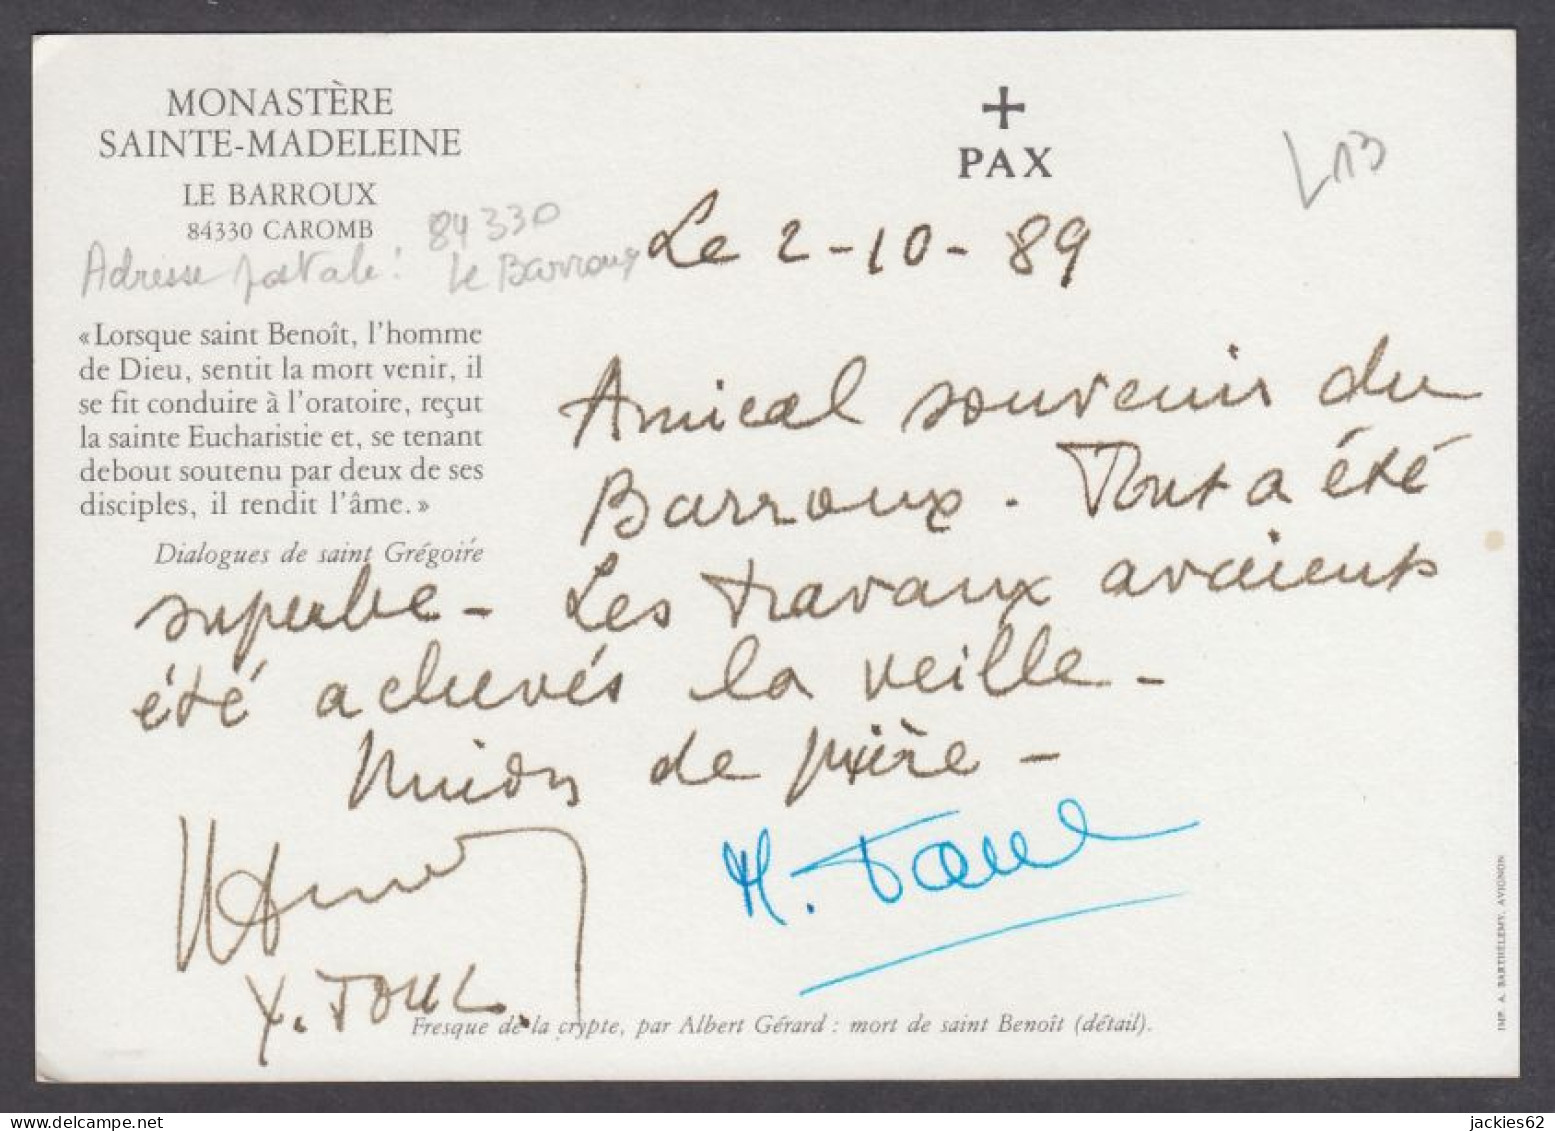 MONASTÈRE
SAINTE-MADELEINE
LE BARROUX
84330 CAROMB
Adresse postale : 84330
Le Barroux
«Lorsque saint Benoît, l'homme
de Dieu, sentit la mort venir, il
se fit conduire à l'oratoire, reçut
la sainte Eucharistie et, se tenant
debout soutenu par deux de ses
disciples, il rendit l'âme.»
Dialogues de saint Grégoire
PAX
L13
Le 2-10-89
Amical souvenir du
Barroux. Tout a été
superbe - Les travaux avaient
été achevés la veille -
Union de prière -
TOUL
Fresque de la crypte, par Albert Gérard : mort de saint Benoît (détail).
IMP. A. BARTHÉLEMY, AVIGNON
jackies62